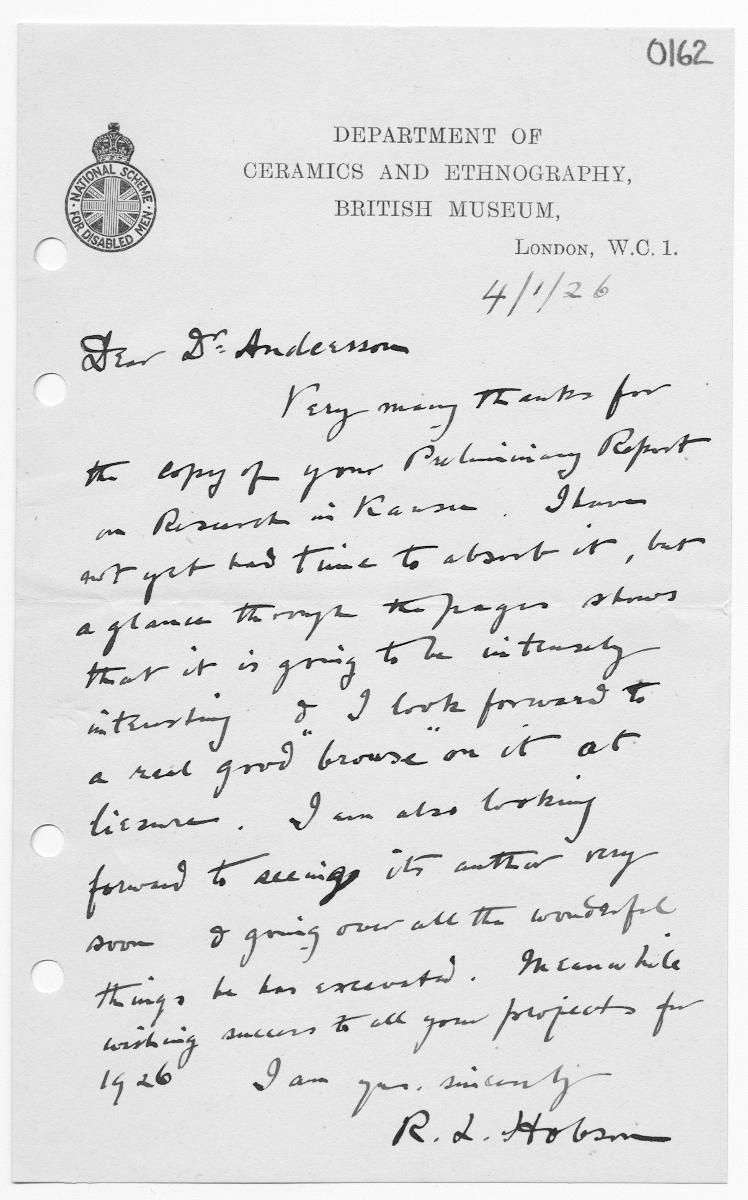 0162
NATIONAL SCHEME
FOR DISABLED MEN
DEPARTMENT OF
CERAMICS AND ETHNOGRAPHY,
BRITISH MUSEUM,
LONDON, W.C. 1.
4/1/26
Dear Dr. Andersson
Very many thanks for
the copy of your Preliminary Report
on Research in Kansu. I have
not yet had time to absorb it, but
a glance through the pages shows
that it is going to be intensely
interesting & I look forward to
a real good "browse" on it at
liesure. I am also looking
forward to seeing its author very
soon & going over all the wonderful
things he has excavated. Meanwhile
wishing success to all your projects for
1926 I am yrs. sincerely
R. L. Hobson